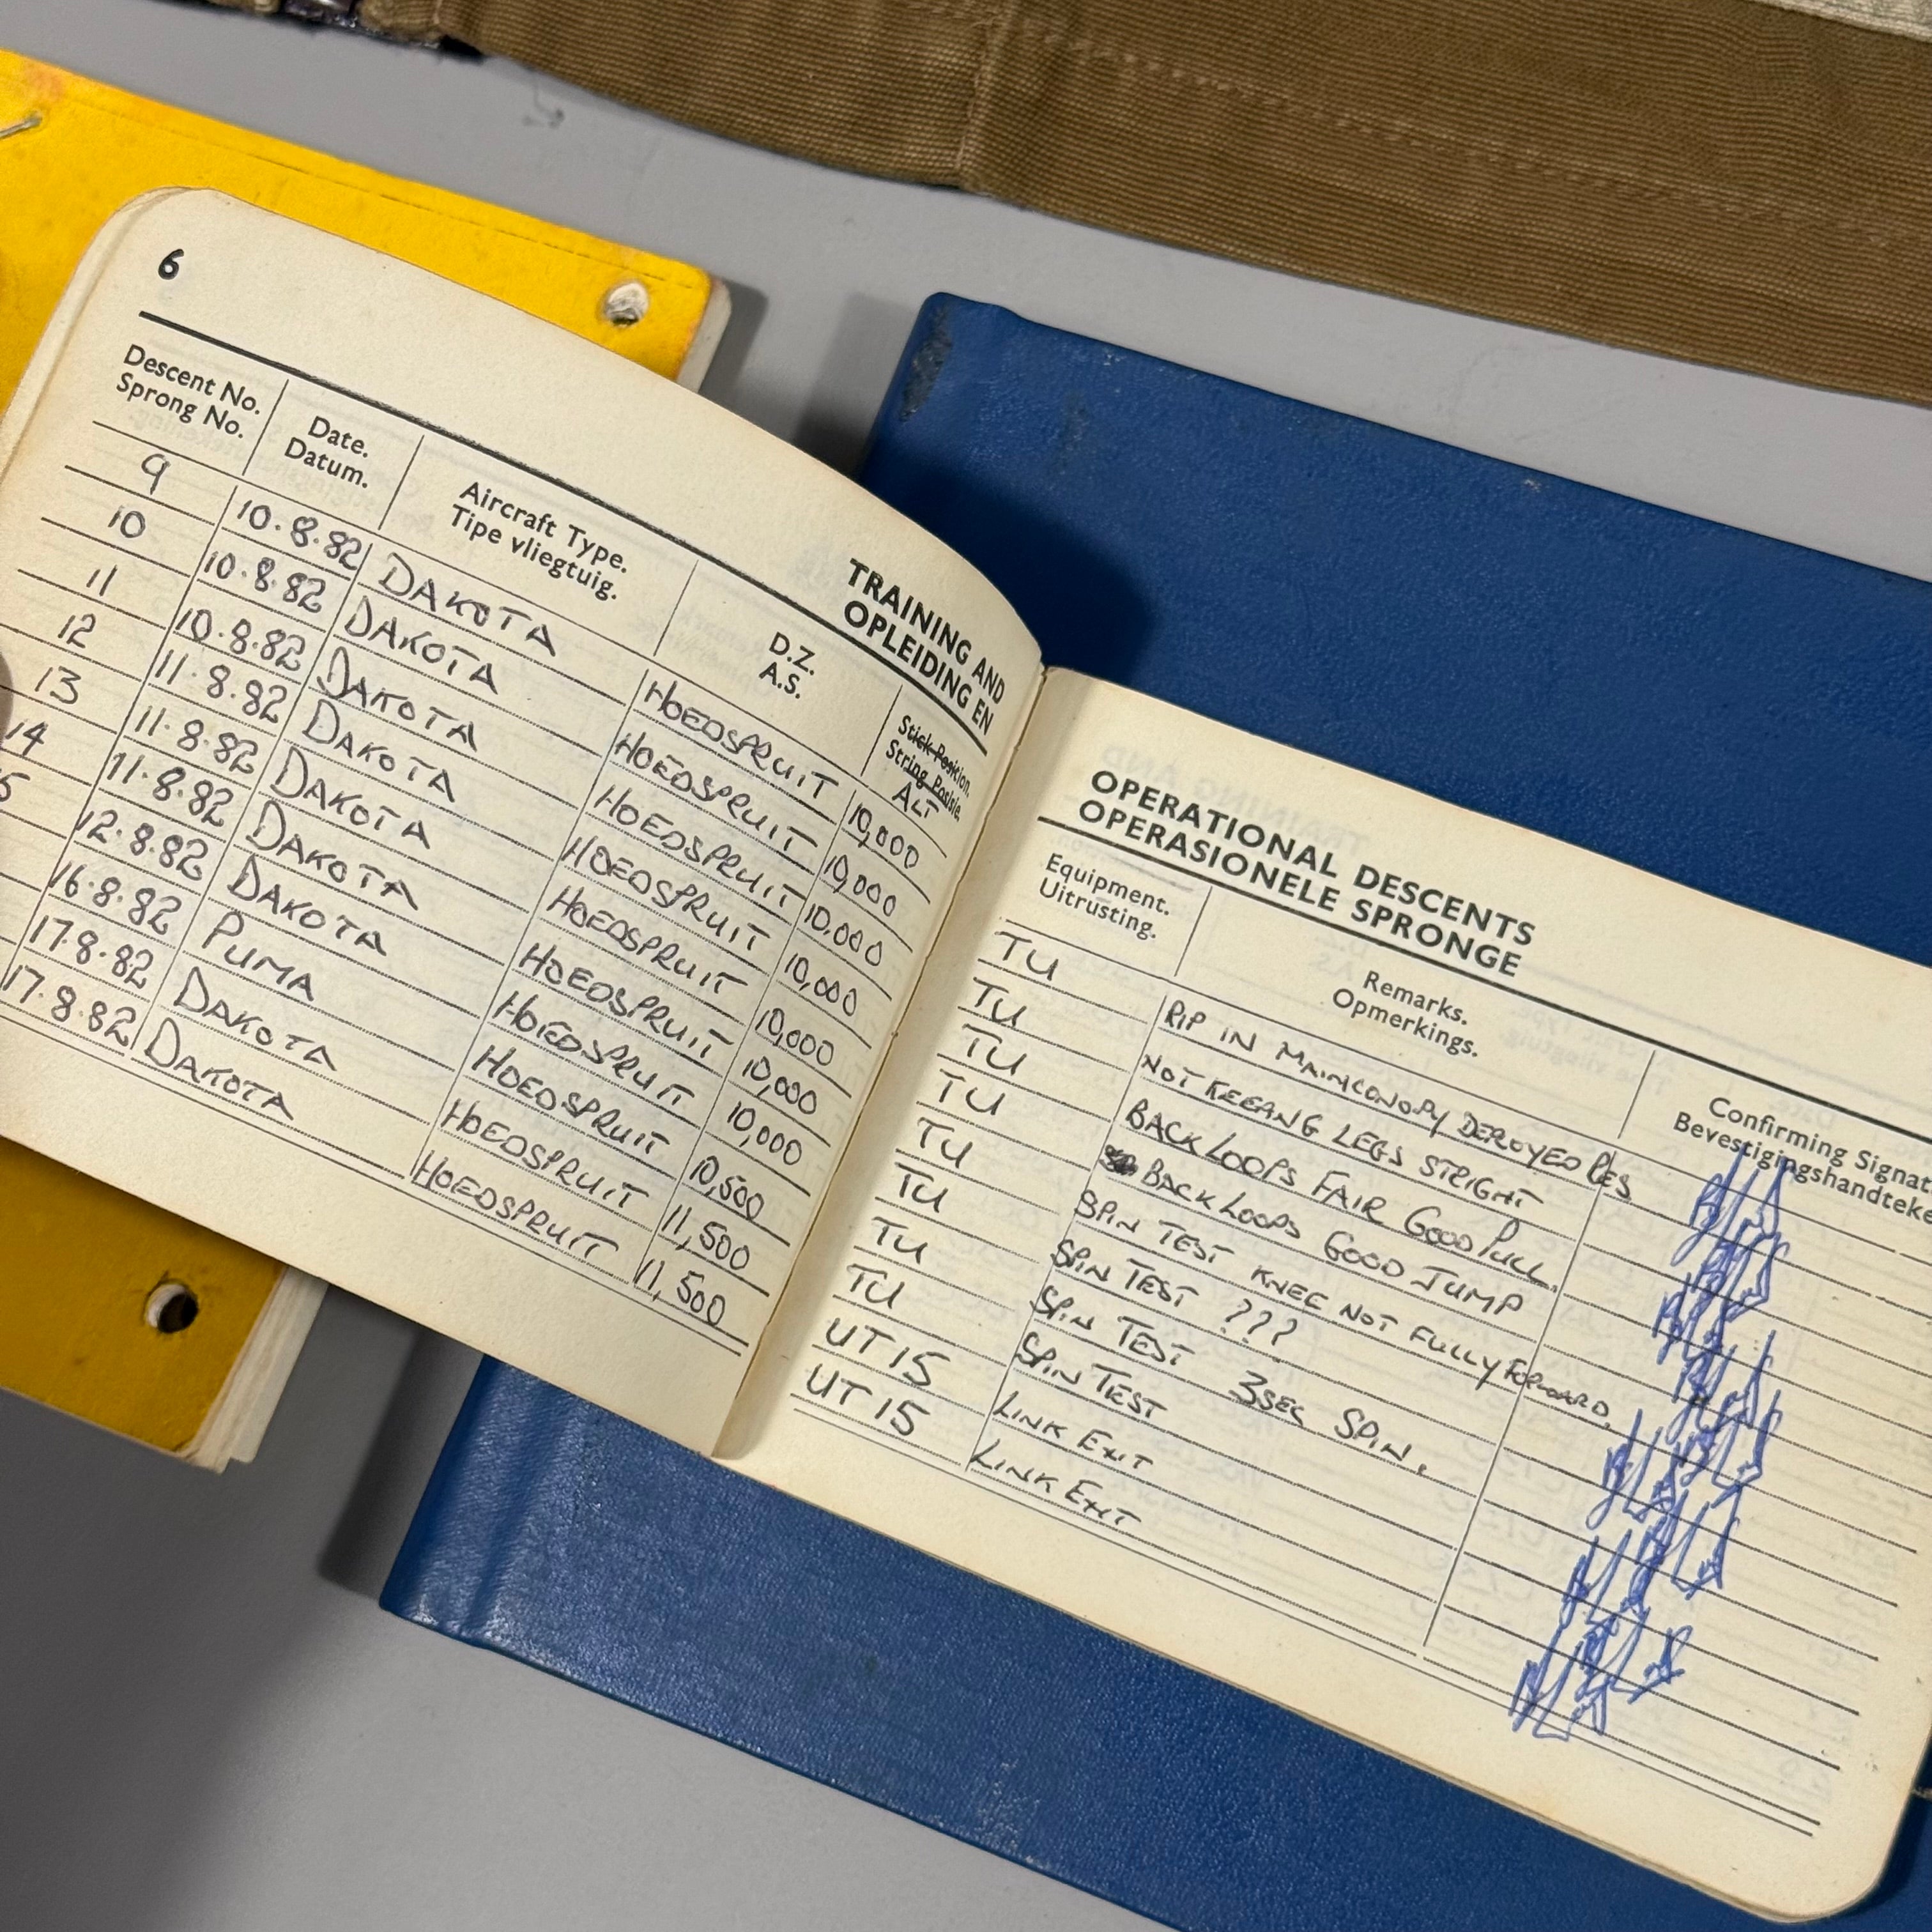 6
TRAINING AND
OPLEIDING EN
Descent No.
Sprong No.
Date.
Datum.
Aircraft Type.
Tipe vliegtuig.
D.Z.
A.S.
Stick Position.
String Posisie.
ALT
9 10.8.82 DAKOTA HOEDSPRUIT 10,000
10 10.8.82 DAKOTA HOEDSPRUIT 10,000
11 10.8.82 DAKOTA HOEDSPRUIT 10,000
12 11.8.82 DAKOTA HOEDSPRUIT 10,000
13 11.8.82 DAKOTA HOEDSPRUIT 10,000
14 11.8.82 DAKOTA HOEDSPRUIT 10,000
5 12.8.82 DAKOTA HOEDSPRUIT 10,000
16.8.82 PUMA HOEDSPRUIT 10,500
17.8.82 DAKOTA HOEDSPRUIT 11,500
17.8.82 DAKOTA HOEDSPRUIT 11,500
OPERATIONAL DESCENTS
OPERASIONELE SPRONGE
Equipment.
Uitrusting.
Remarks.
Opmerkings.
Confirming Signat
Bevestigingshandteke
TU RIP IN MAINCONOPY DEPLOYED RES
TU NOT KEEANG LEGS STRIGHT
TU BACK LOOPS FAIR GOOD PULL.
TU BACK LOOPS GOOD JUMP
TU SPIN TEST KNEE NOT FULLY FORWARD.
TU SPIN TEST ???
TU SPIN TEST 3SEC SPIN.
TU SPIN TEST
UT15 LINK EXIT
UT15 LINK EXIT